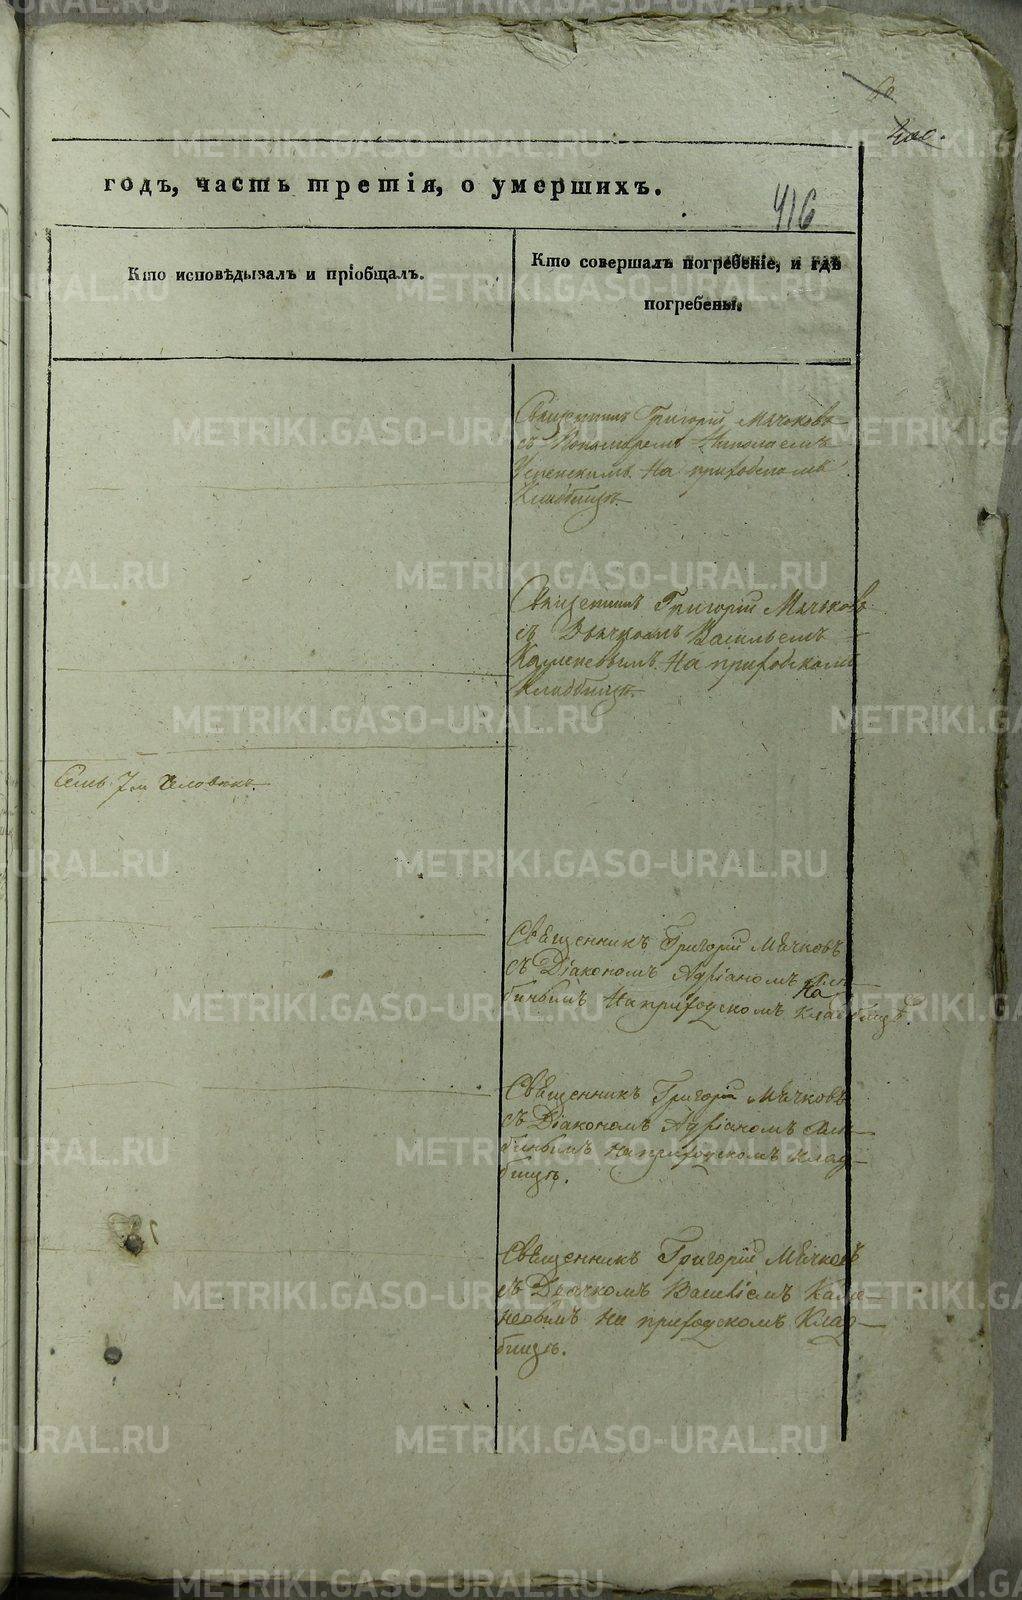 годъ, часть третія, о умершихъ.
416
Кто исповѣдывалъ и пріобщалъ.
Кто совершалъ погребеніе, и гдѣ
погребены.
Священникъ Григорій Мячковъ
съ Пономаремъ Николаемъ
Успенскимъ. На приходскомъ
Кладбищѣ.
Священникъ Григорій Мячковъ
съ Дьячкомъ Васильемъ
Каменевымъ. На приходскомъ
Кладбищѣ.
Семь 7м человѣкъ.
Священникъ Григорій Мячковъ
съ Діакономъ Адріаномъ
На приходскомъ Кладбищѣ.
Священникъ Григорій Мячковъ
съ Діакономъ Адріаномъ
на приходскомъ клад-
бищѣ.
Священникъ Григорій Мячковъ
съ Дьячкомъ Василіемъ Каме-
невымъ на приходскомъ Клад-
бищѣ.
METRIKI.GASO-URAL.RU